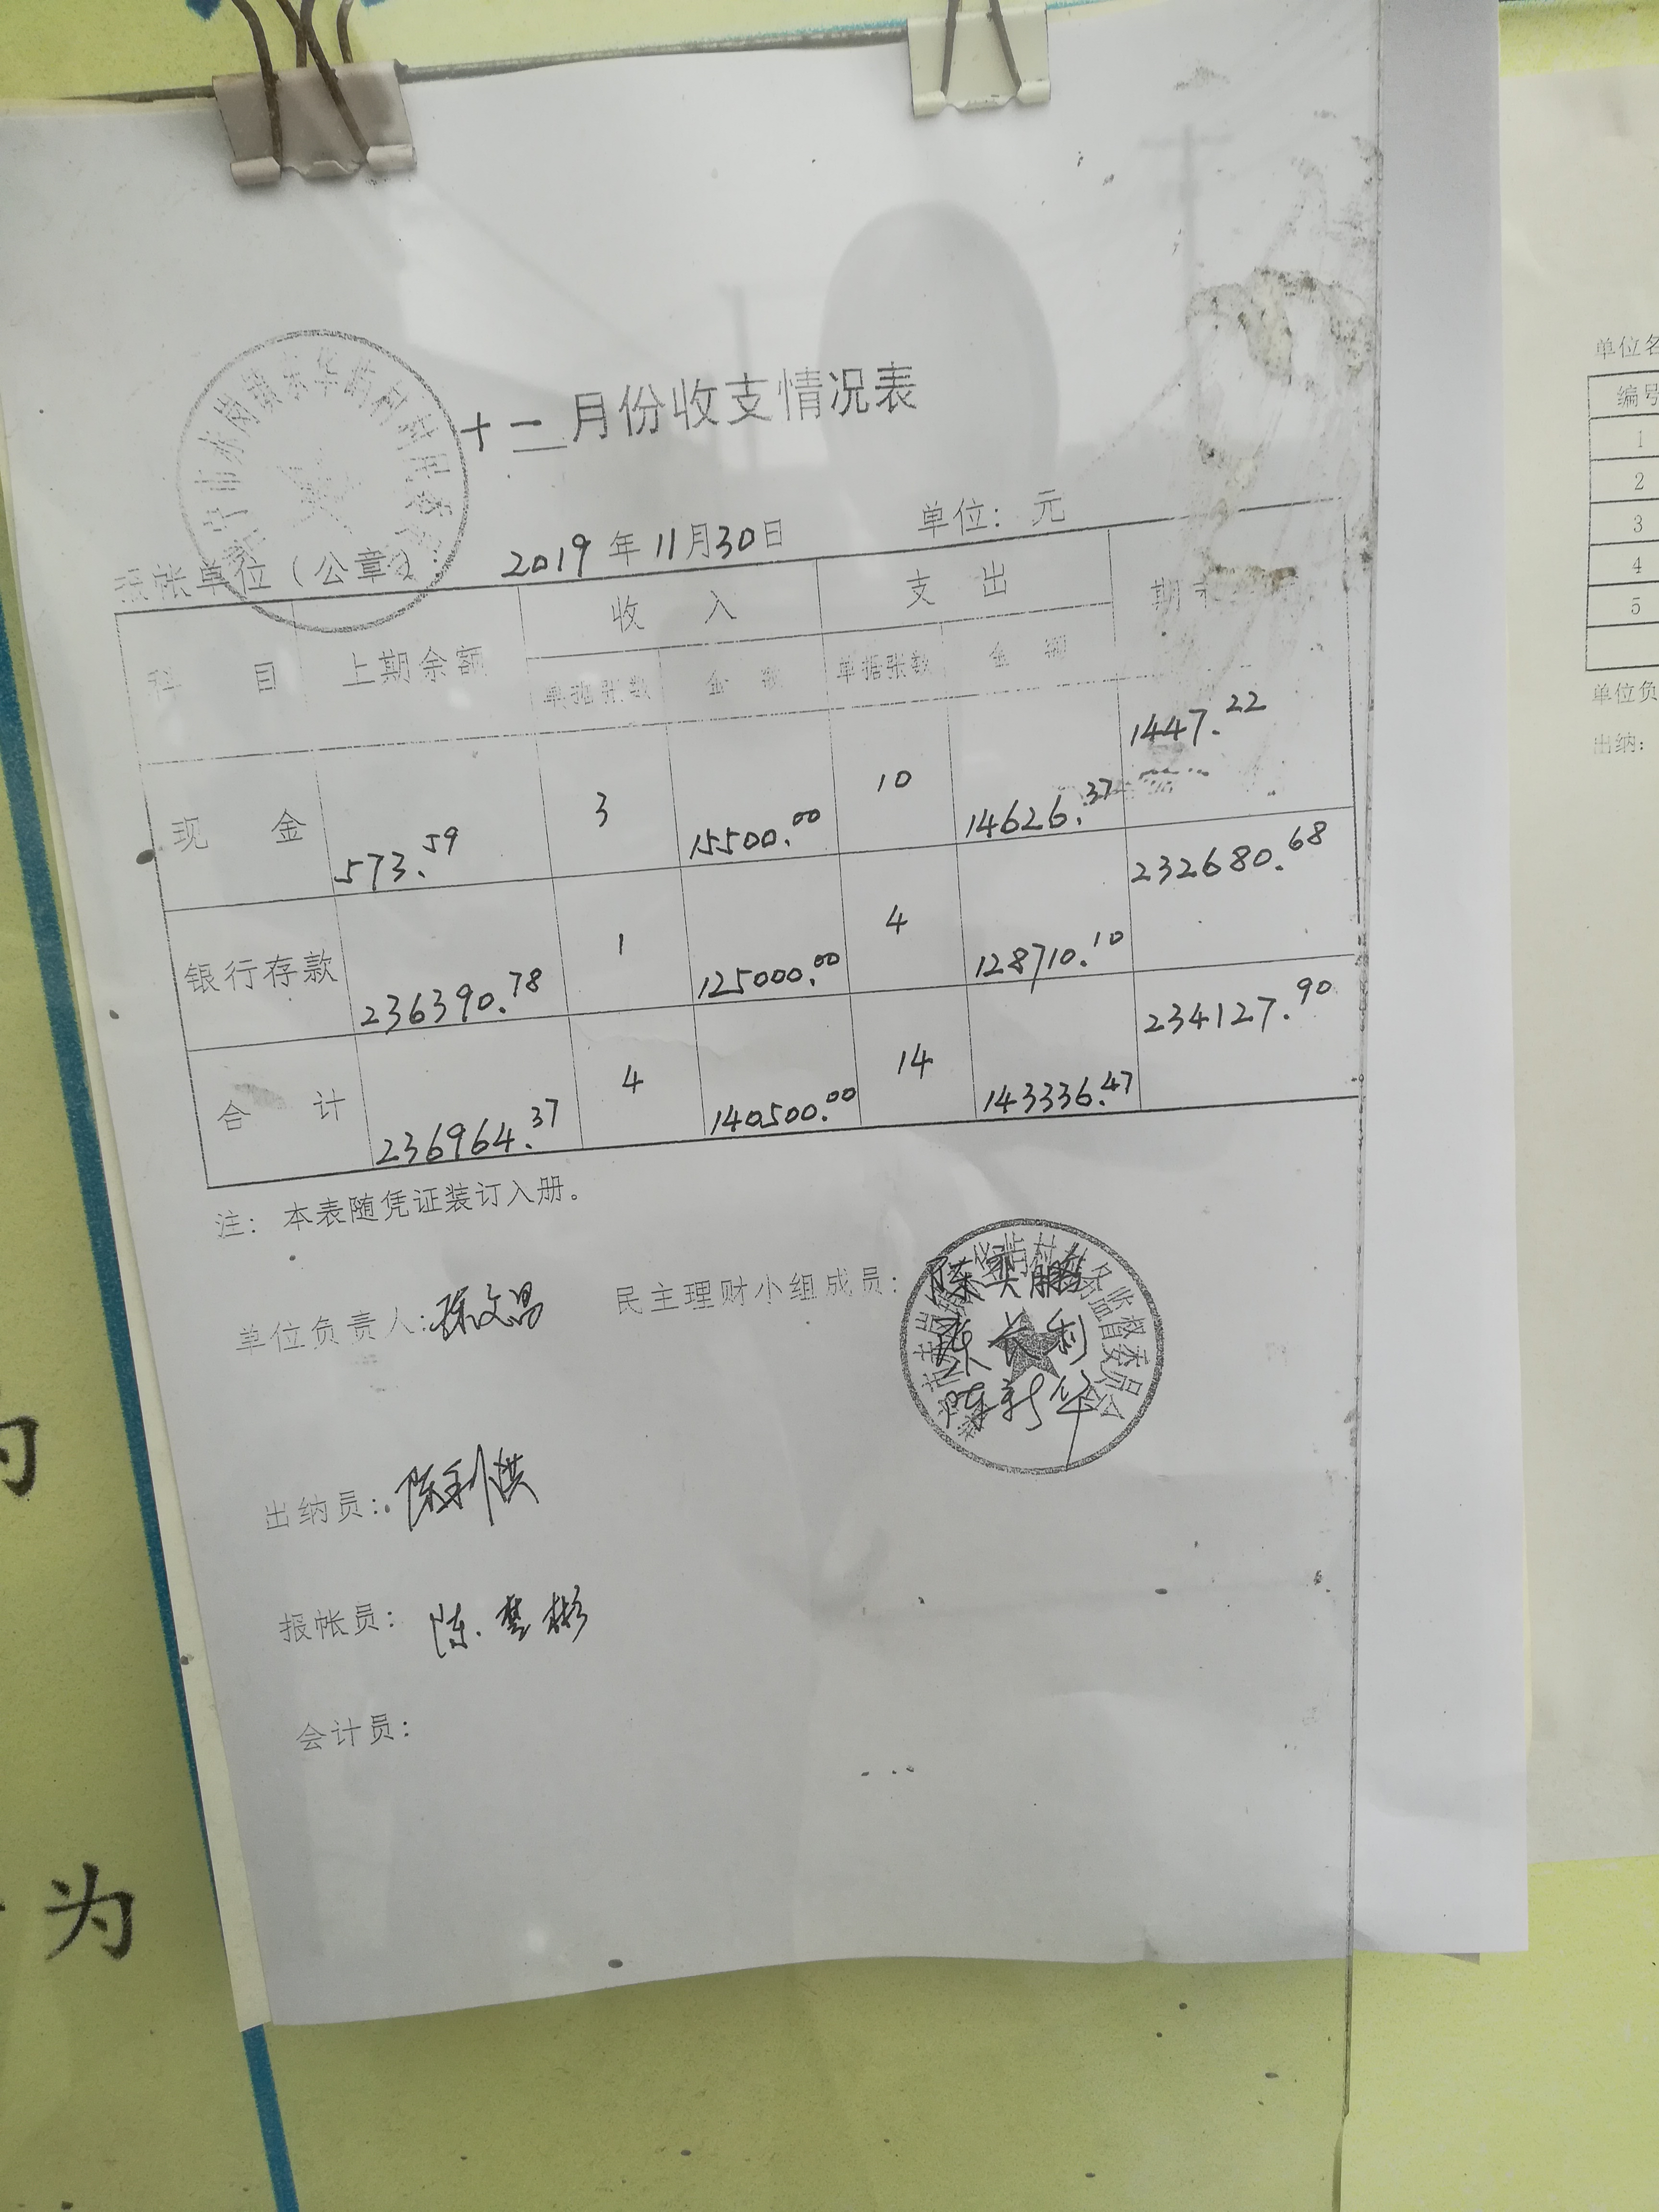 十一月份收支情况表
报帐单位（公章） 2019年11月30日 单位：元
科目 上期余额 收入 支出 期末
单据张数 金额 单据张数 金额
现金 573.59 3 15500.00 10 14626.37 1447.22
银行存款 236390.78 1 125000.00 4 128710.10 232680.68
合计 236964.37 4 140500.00 14 143336.47 234127.90
注：本表随凭证装订入册。
单位负责人：陈文昌 民主理财小组成员：陈奕鹏
陈长利
陈新华
出纳员：陈利洪
报帐员：陈楚彬
会计员：
单位名
编号
1
2
3
4
5
单位负
出纳：
为